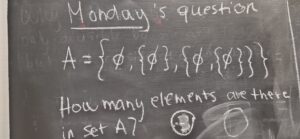 Monday's question
A = {ϕ, {ϕ}, {ϕ, {ϕ}}}
How many elements are there
in set A?